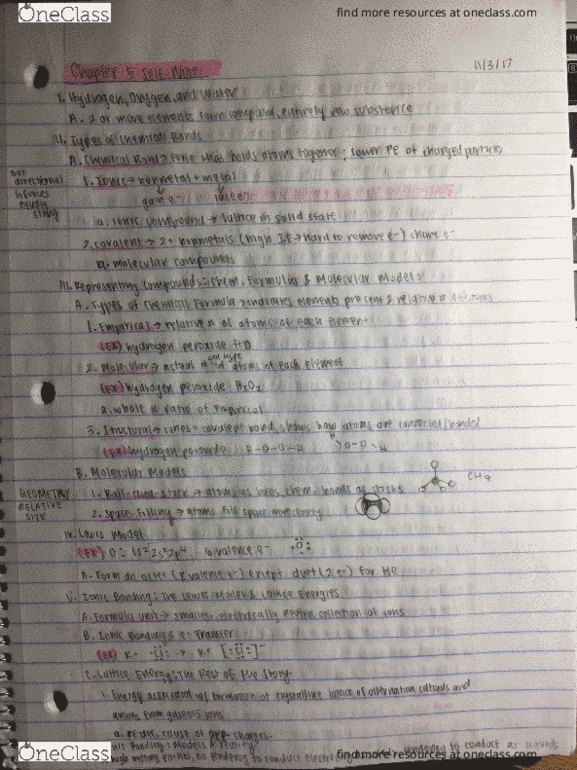 OneClass
find more resources at oneclass.com
11/3/17
Chapter 5 Self Notes
I. Hydrogen, Oxygen, and Water
A. 2 or more elements form compound, entirely new substance
II. Types of Chemical Bonds
A. Chemical Bond → force that holds atoms together; lower PE of charged particles
1. Ionic → nonmetal + metal
not directional
forces equally strong
gain e- lose e-
a. ionic compound → lattice in solid state
2. covalent → 2+ nonmetals (high IE → hard to remove e-) share e-
a. molecular compounds
III. Representing Compounds: Chem. Formulas & Molecular Models
A. Types of Chemical Formula → indicates elements present & relative # of atoms
1. Empirical → relative # of atoms of each element
(EX) hydrogen peroxide HO
2. Molecular → actual # of atoms of each element
(EX) hydrogen peroxide: H2O2
a. whole # ratio of empirical
3. Structural → lines = covalent bond, shows how atoms are connected/bonded
(EX) hydrogen peroxide H-O-O-H
H O-O H
B. Molecular Models
GEOMETRY
1. Ball-and-stick → atoms as balls, chem. bonds as sticks
CH4
RELATIVE SIZE
2. Space-filling → atoms fill space
IV. Lewis Model
(EX) O: 1s² 2s² 2p⁴ 6 valence e-
A. Form an octet (8 valence e-) except duet (2 e-) for He
V. Ionic Bonding: The Lewis Model & Lattice Energies
A. Formula unit → smallest, electrically neutral collection of ions
B. Ionic Bonding & e- Transfer
(EX) K· :Cl: → K+ [:Cl:]-
C. Lattice Energy: The Rest of the Story
1. Energy associated w/ formation of crystalline lattice of alternating cations and
anions from gaseous ions
a. PE cause of opp. charges.
Ionic Bonding: Models & Reality
high melting points, no tendency to conduct
to conduct as liquids
OneClass
find more resources at oneclass.com